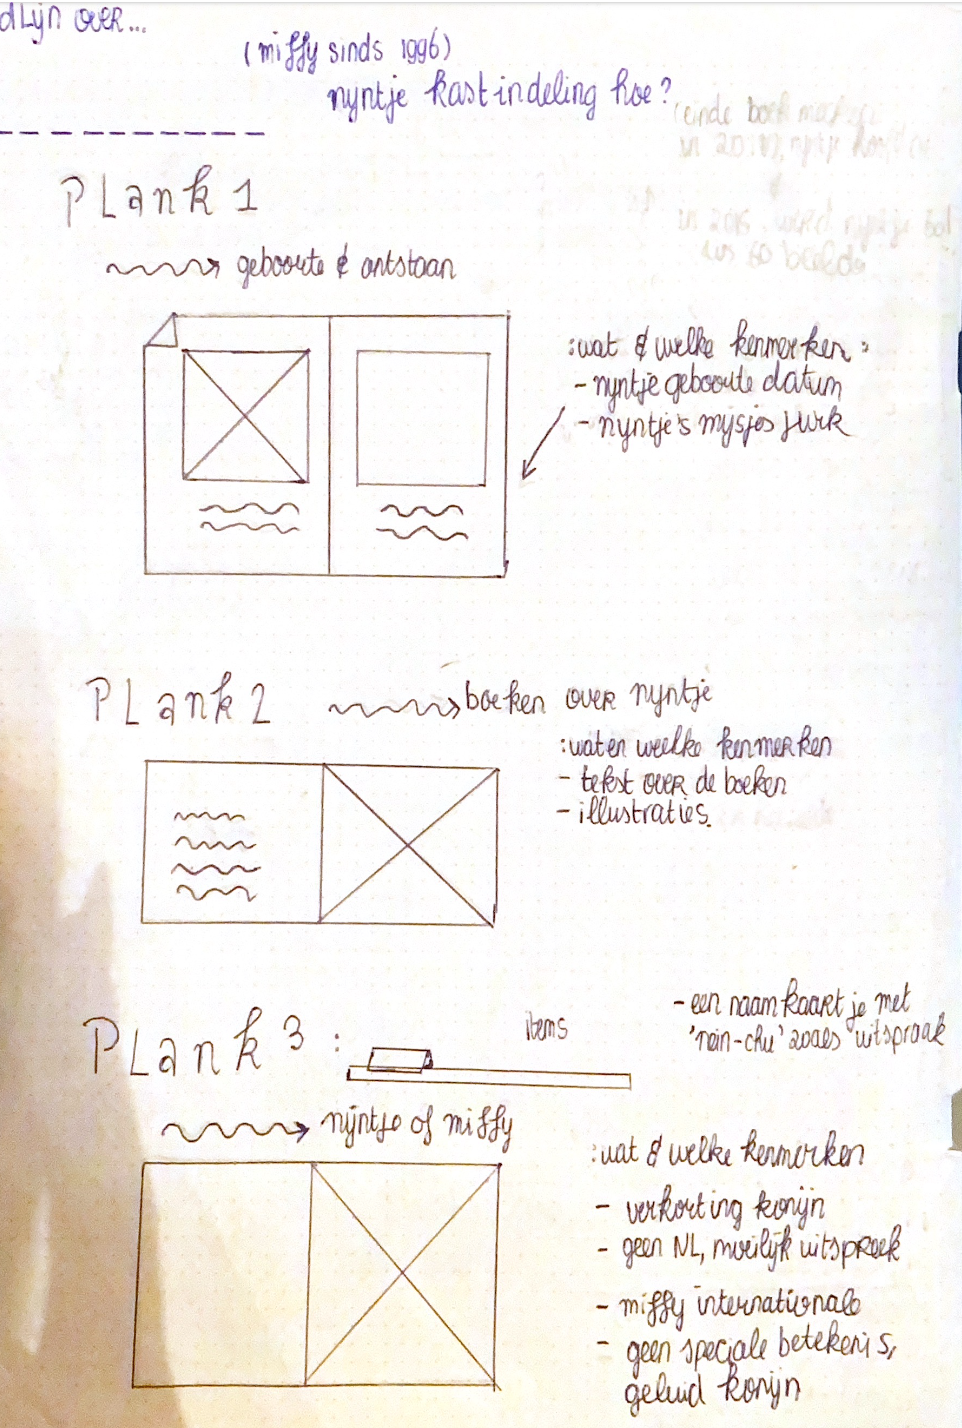 dlijn over...
(miffy sinds 1996)
nyntje kastindeling hoe?
Plank 1
geboorte & ontstaan
:wat & welke kenmerken:
- nyntje geboorte datum
- nyntje's mijsjes jurk
Plank 2
boeken over nyntje
:wat en welke kenmerken
- tekst over de boeken
- illustraties.
Plank 3 :
items
- een naamkaartje met
'nein-chu' zoals uitspraak
nijntje of miffy
:wat & welke kenmerken
- verkorting konijn
- geen NL, moeilijk uitspraak
- miffy internationale
- geen speciale betekenis,
geluid konijn